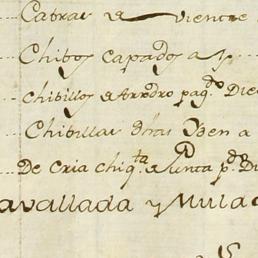 Cabras de vientre
Chibos capados a
Chibillos de Arredro pag.do Die
Chibillas dhas Ydem a
De cria chiq.ta Junta p.do Di
avallada y Mula